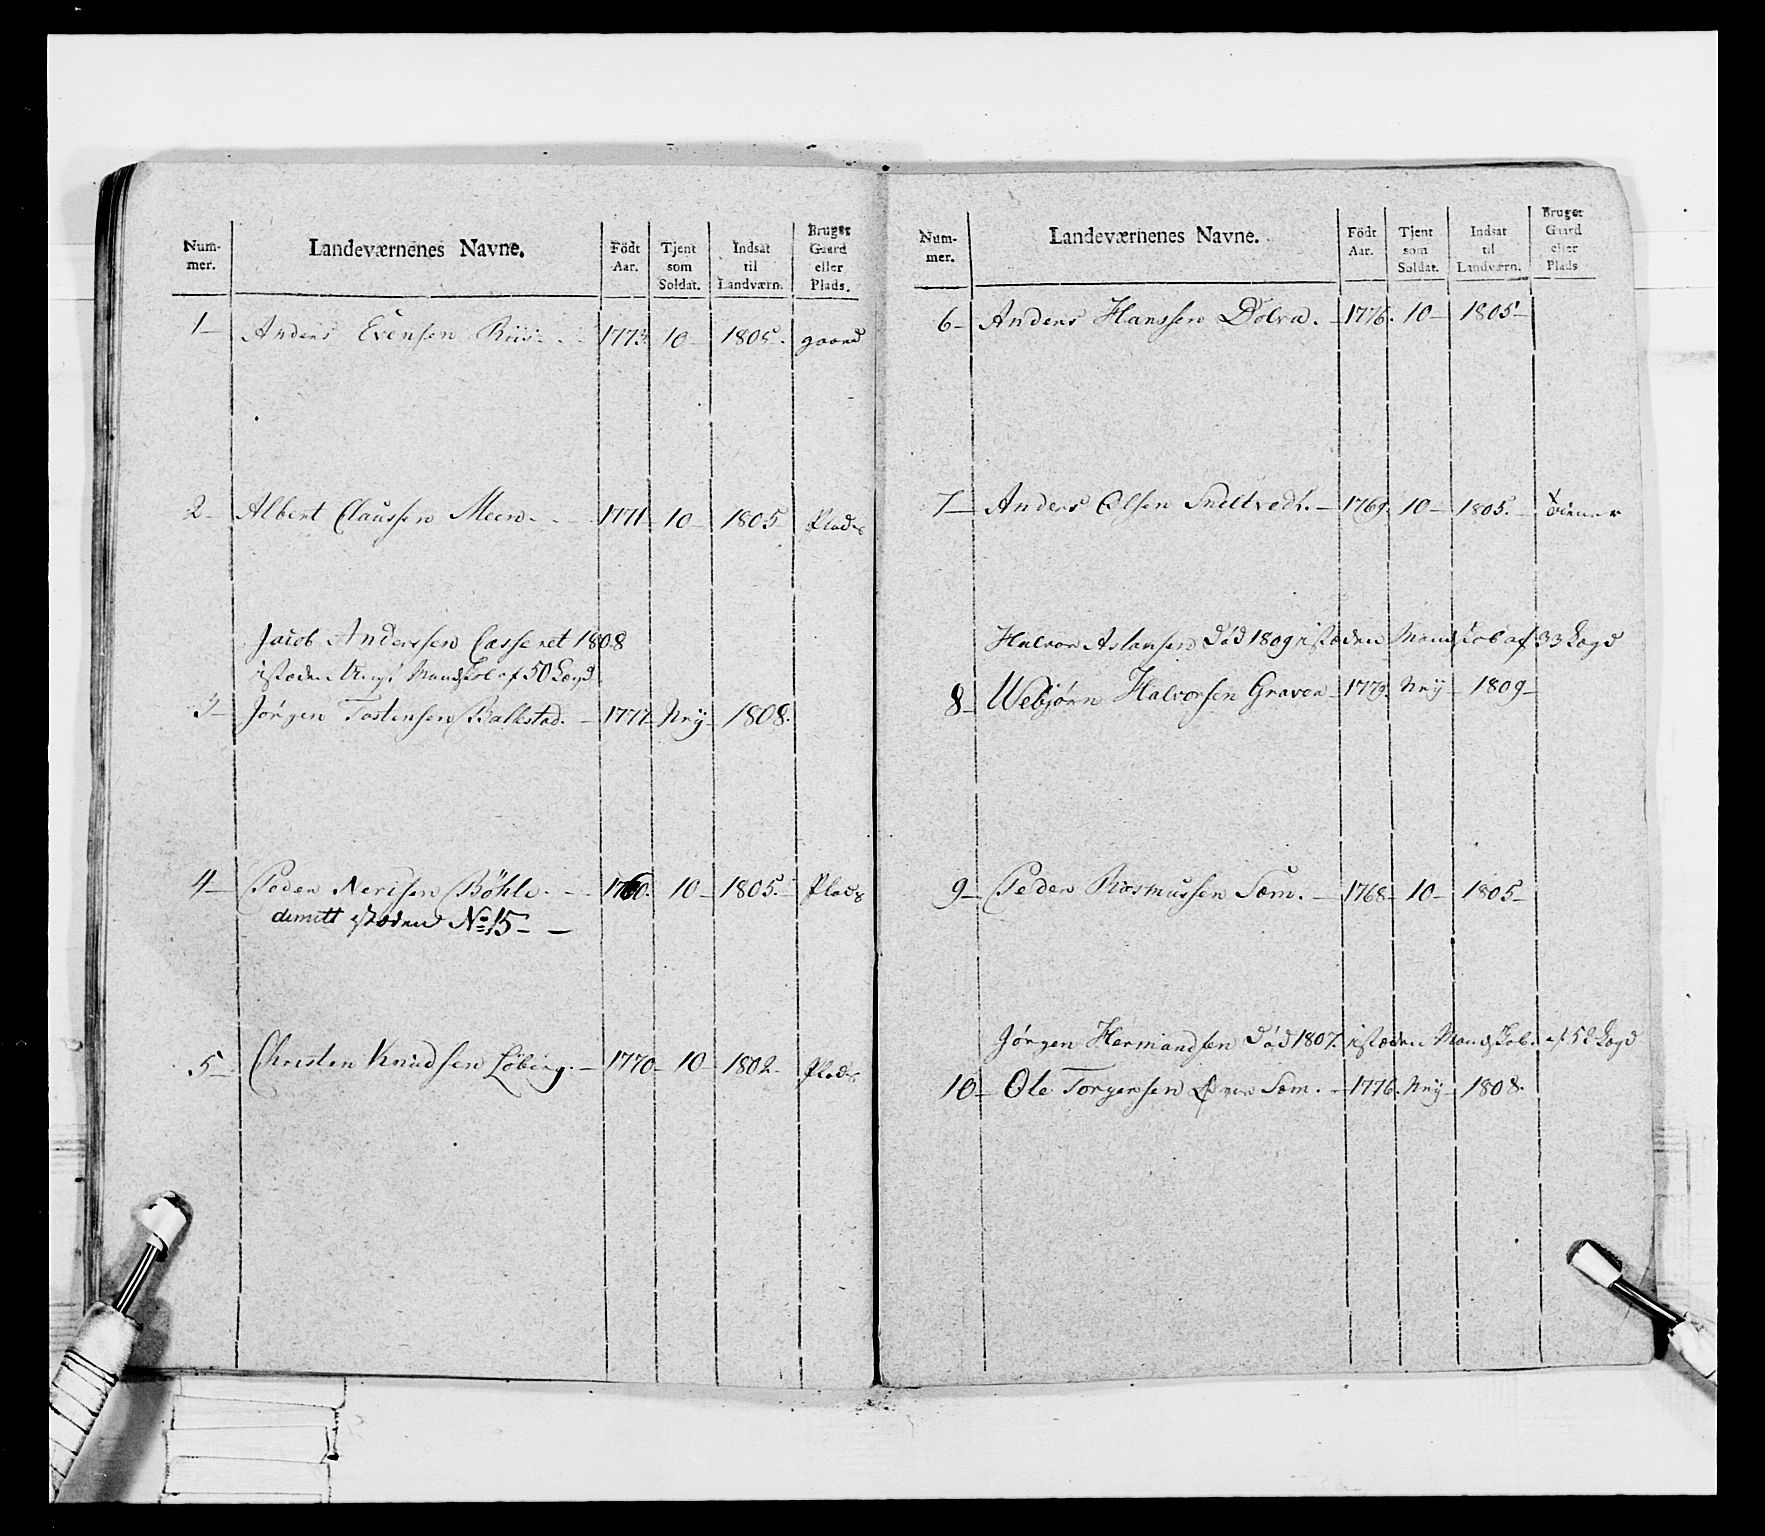 Num-
mer.
Landeværnenes Navne.
Födt
Aar.
Tjent
som
Soldat.
Indsat
til
Landværn.
Bruget
Gaard
eller
Plads.
1- Anders Evensen Riis. 1773. 10- 1805. gaard
2- Albert Claussen Meen. 1771- 10- 1805 Plads
Jacob Anderssen Casseret 1808
istæden Mandskob af 50 Lægd
3- Jørgen Tostensen Ballestad. - 1777- Nÿ- 1808.
4- Peder Nerisen Bøhle. - 1760. 10- 1805.- Plads
dimitt istæden No 15-
5- Christen Knudsen Løberg. - 1770- 10- 1802- Plads
Num-
mer.
Landeværnenes Navne.
Födt
Aar.
Tjent
som
Soldat.
Indsat
til
Landværn.
Bruget
Gaard
eller
Plads
6- Anders Hanssen Dolva. - 1776. 10- 1805-
7- Anders Olsen Sneltvedt. - 1769. 10- 1805.-
Halvor Aslansen Død 1809 istæden Mandskob af 33 Lægd
8- Webjørn Halvorsen Graven - 1779. Nÿ- 1809-
9- Peder Rasmussen Sem. - 1768- 10- 1805-
Jørgen Hermandsen Død 1807. istæden Mandskob. af 52 Lægd
10- Ole Torgersen Øvre Sem. - 1776. Nÿ- 1808.